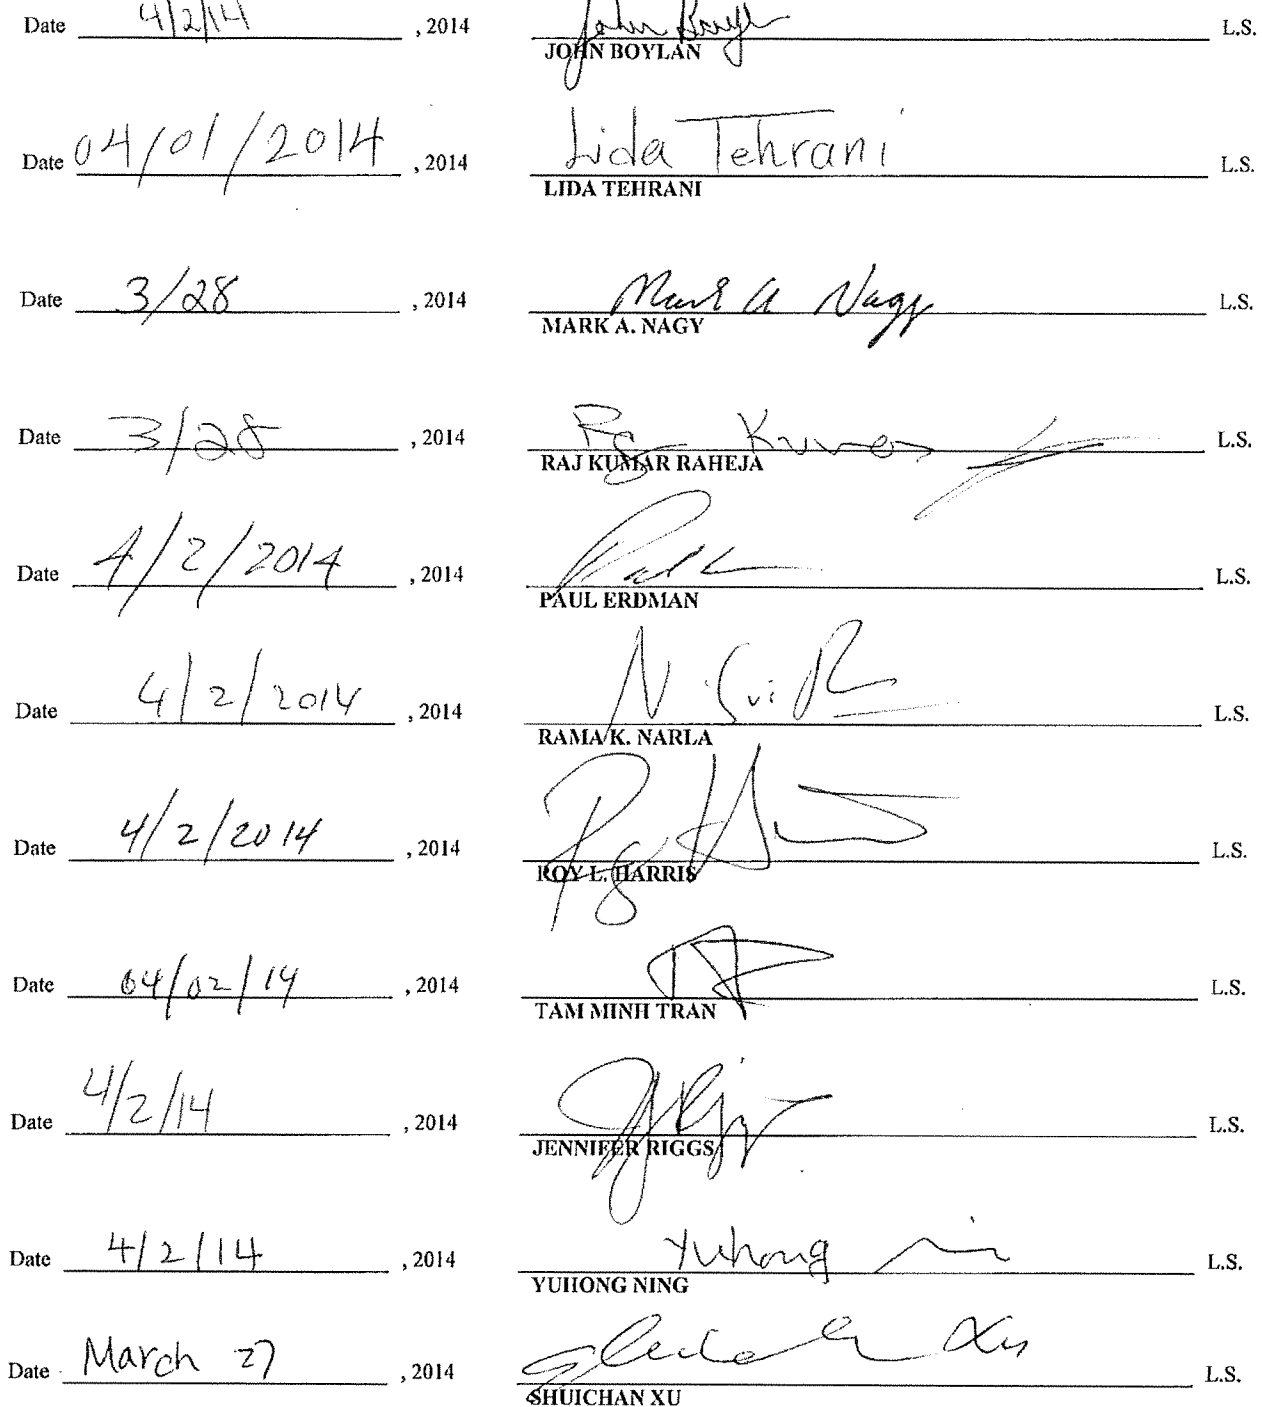 Date 4/2/14 , 2014 John Boyl L.S.
JOHN BOYLAN
Date 04/01/2014 , 2014 Lida Tehrani L.S.
LIDA TEHRANI
Date 3/28 , 2014 Mark A Nagy L.S.
MARK A. NAGY
Date 3/28 , 2014 Raj Kumar L.S.
RAJ KUMAR RAHEJA
Date 4/2/2014 , 2014 L.S.
PAUL ERDMAN
Date 4/2/2014 , 2014 L.S.
RAMA K. NARLA
Date 4/2/2014 , 2014 L.S.
ROY L. HARRIS
Date 04/02/14 , 2014 L.S.
TAM MINH TRAN
Date 4/2/14 , 2014 L.S.
JENNIFER RIGGS
Date 4/2/14 , 2014 Yuhong L.S.
YUHONG NING
Date March 27 , 2014 Xu L.S.
SHUICHAN XU